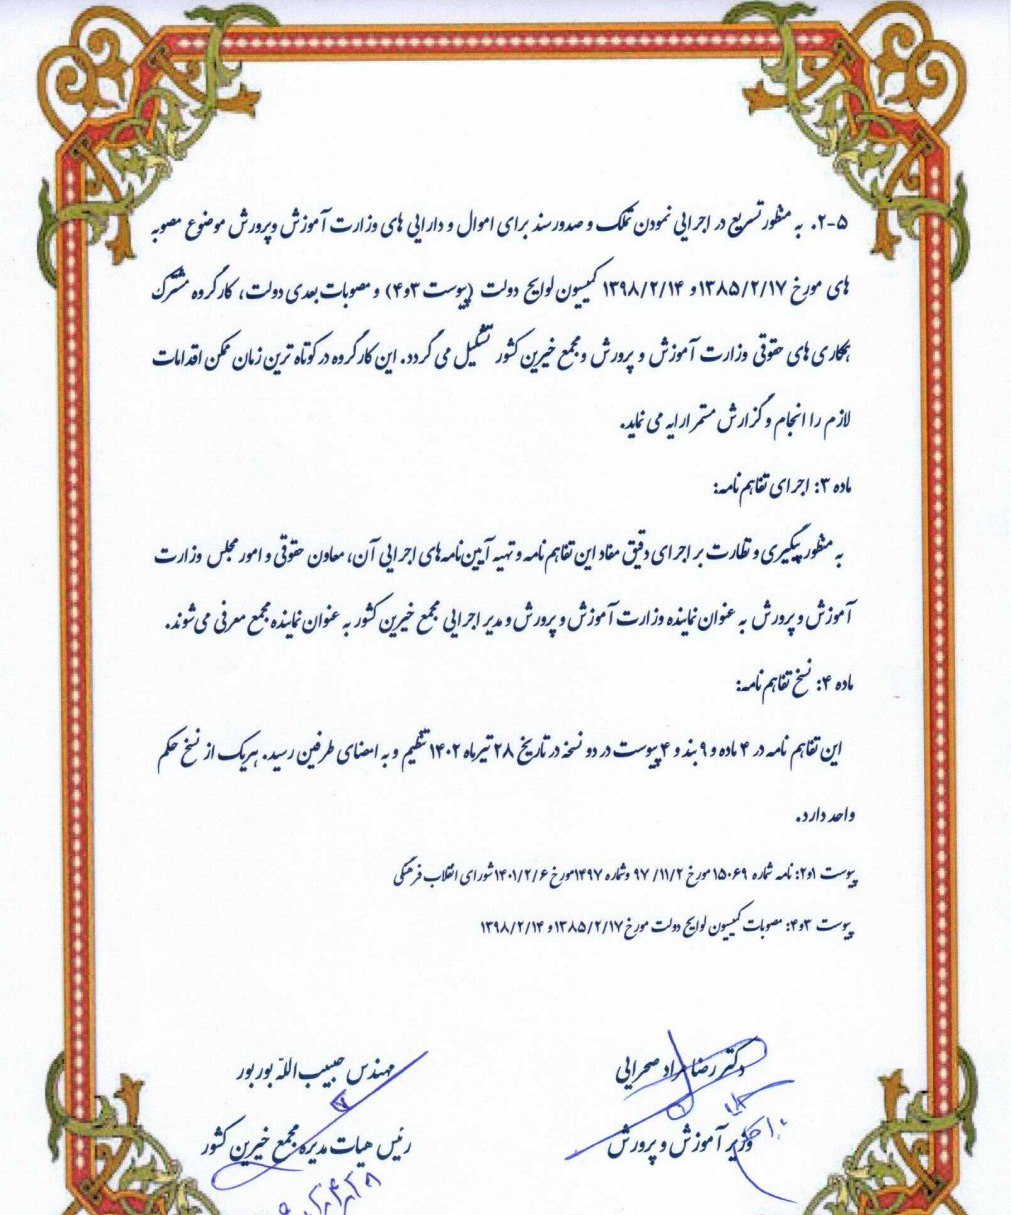 ۲-۵. به منظور تسریع در اجرایی نمودن تملک و صدور سند برای اموال و دارایی های وزارت آموزش و پرورش موضوع مصوبه
های مورخ ۱۳۸۵/۲/۱۷ و ۱۳۹۸/۲/۱۴ کمیسیون لوایح دولت (پیوست ۳و۴) و مصوبات بعدی دولت، کارگروه مشترک
همکاری های حقوقی وزارت آموزش و پرورش و مجمع خیرین کشور تشکیل می گردد. این کارگروه در کوتاه ترین زمان ممکن اقدامات
لازم را انجام و گزارش مستمر ارایه می نماید.
ماده ۳: اجرای تفاهم نامه:
به منظور پیگیری و نظارت بر اجرای دقیق مفاد این تفاهم نامه و تهیه آیین نامه های اجرایی آن، معاون حقوقی و امور مجلس وزارت
آموزش و پرورش به عنوان نماینده وزارت آموزش و پرورش و مدیر اجرایی مجمع خیرین کشور به عنوان نماینده مجمع معرفی می شوند.
ماده ۴: نسخ تفاهم نامه:
این تفاهم نامه در ۴ ماده و ۹ بند و ۴ پیوست در دو نسخه در تاریخ ۲۸ تیرماه ۱۴۰۲ تنظیم و به امضای طرفین رسید. هریک از نسخ حکم
واحد دارد.
پیوست ۱و۲: نامه شماره ۱۵۰۶۹ مورخ ۹۷/۱۱/۲ و شماره ۱۴۹۷ مورخ ۱۴۰۱/۲/۶ شورای انقلاب فرهنگی
پیوست ۳و۴: مصوبات کمیسیون لوایح دولت مورخ ۱۳۸۵/۲/۱۷ و ۱۳۹۸/۲/۱۴
دکتر رضا مراد صحرایی
وزیر آموزش و پرورش
مهندس حبیب الله بوربور
رئیس هیات مدیره مجمع خیرین کشور